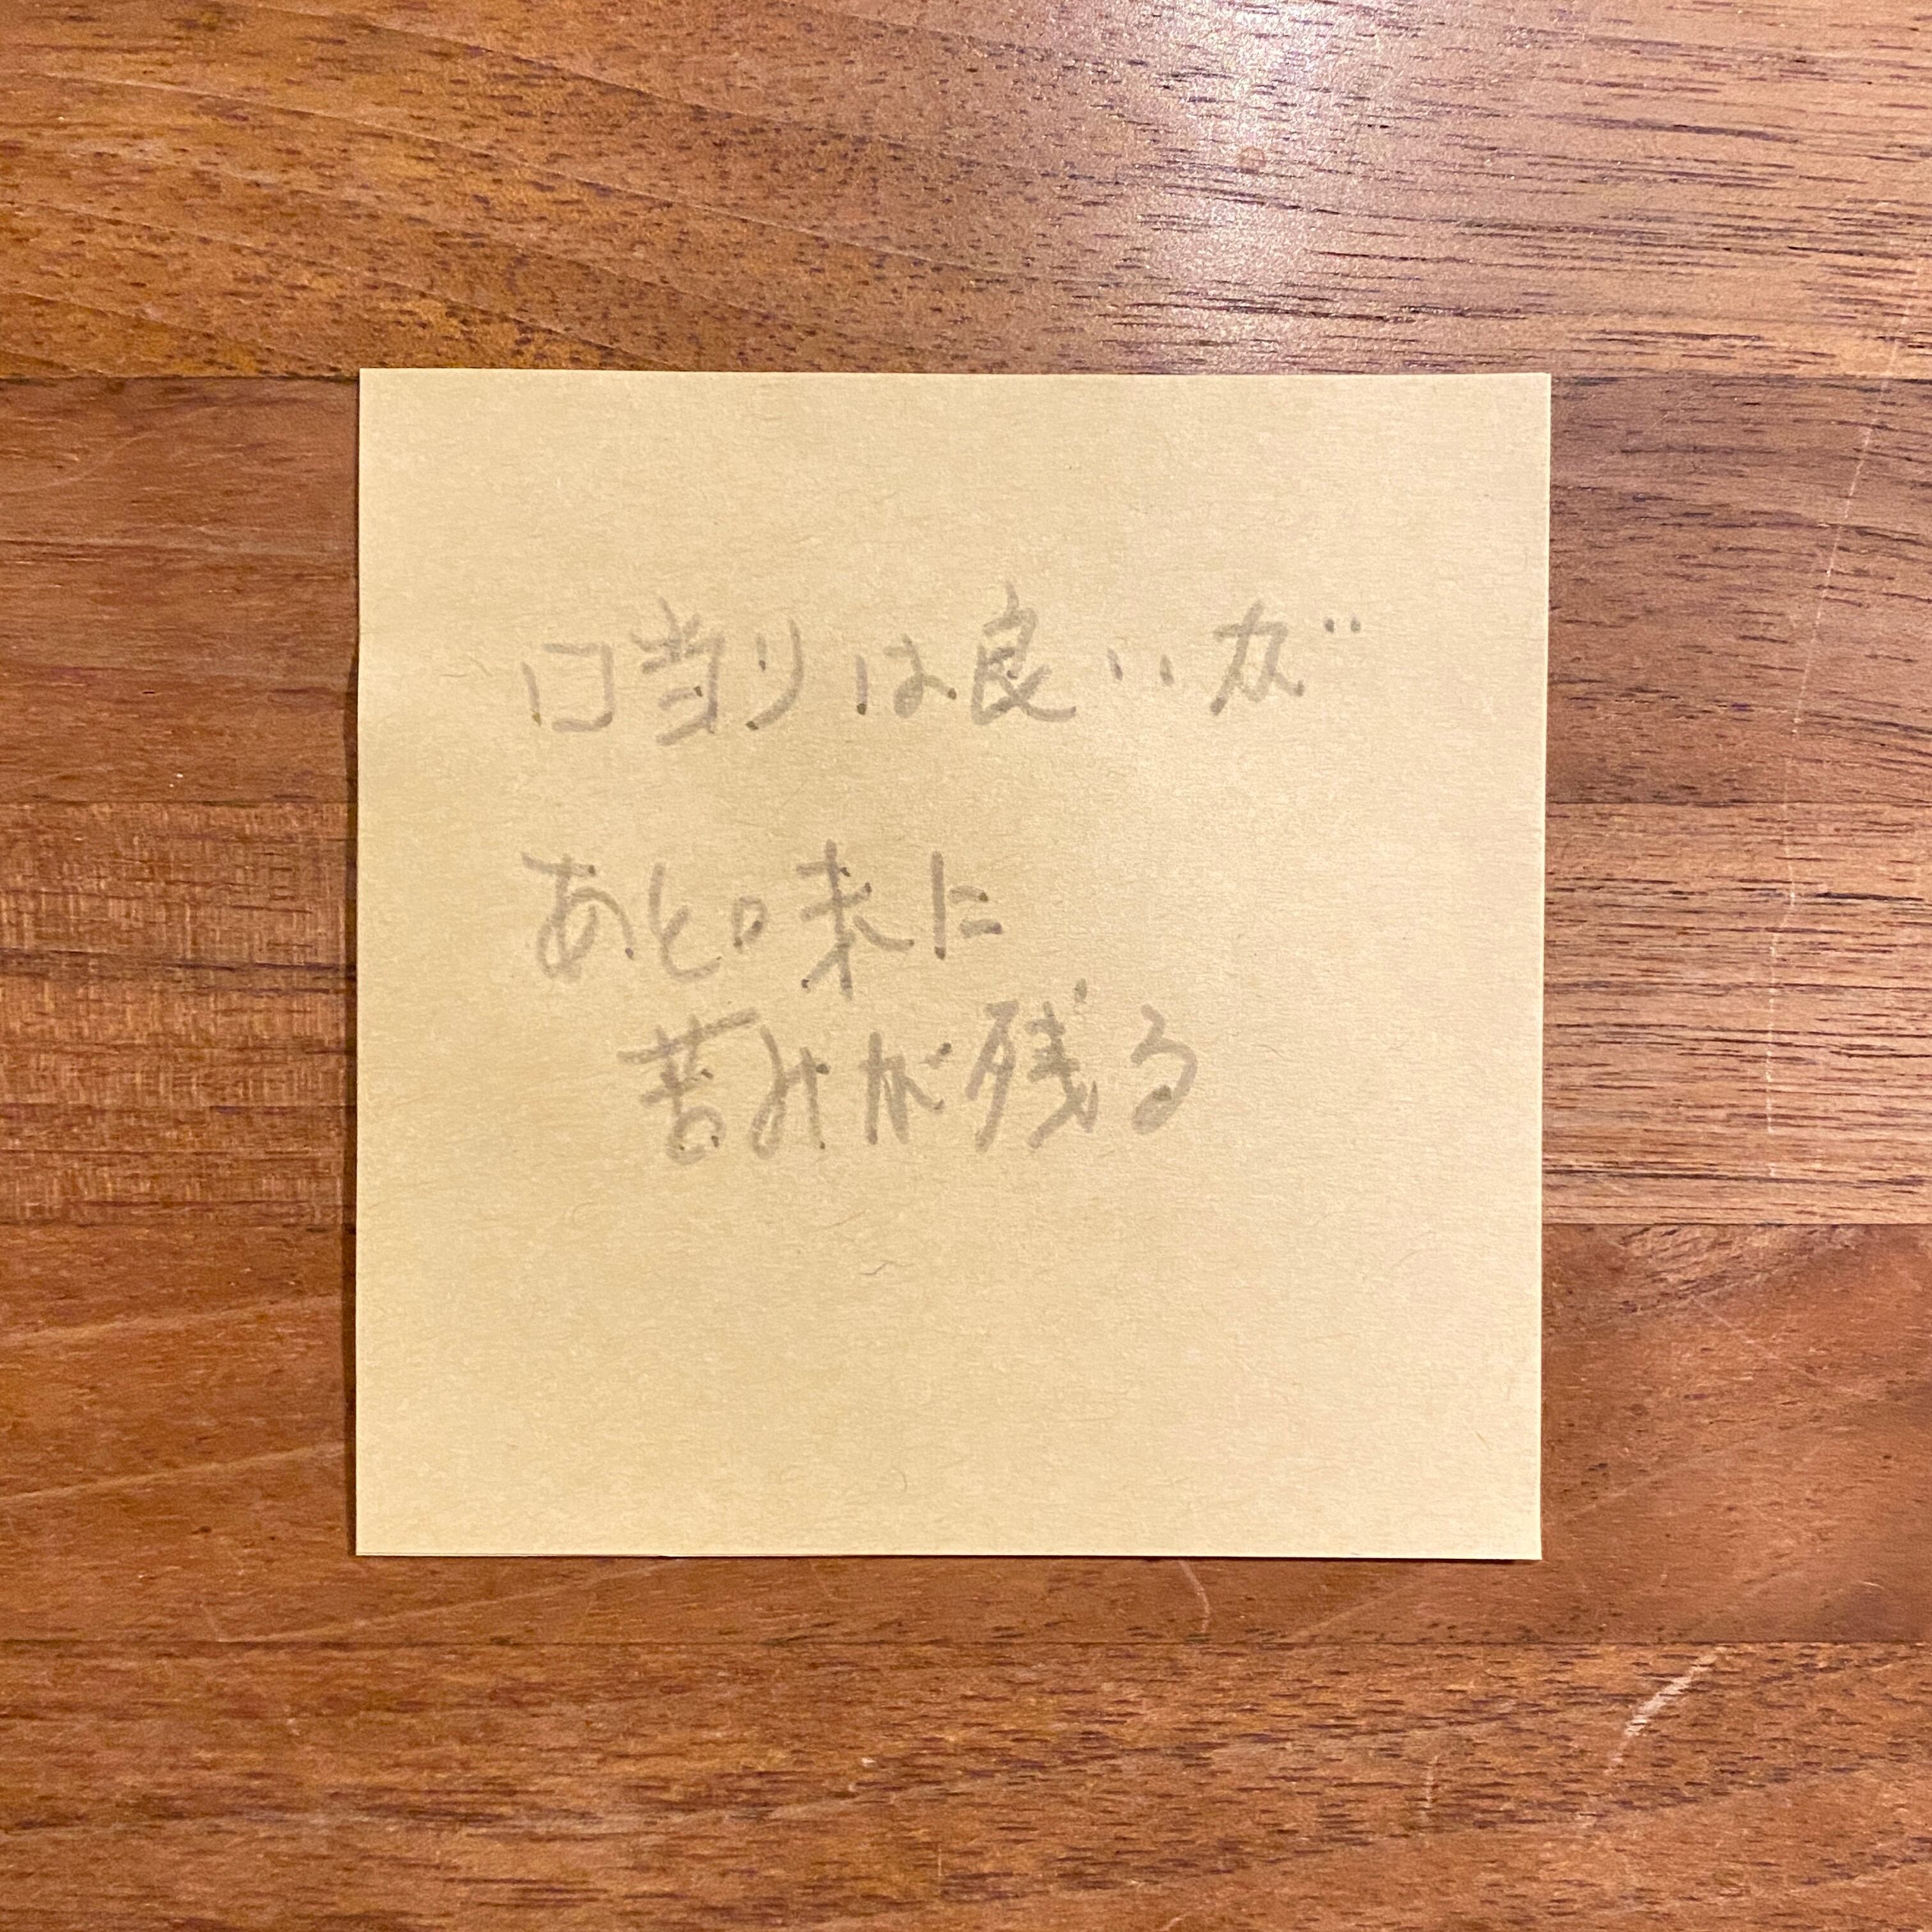 口当りは良いが
あと味に
苦みが残る